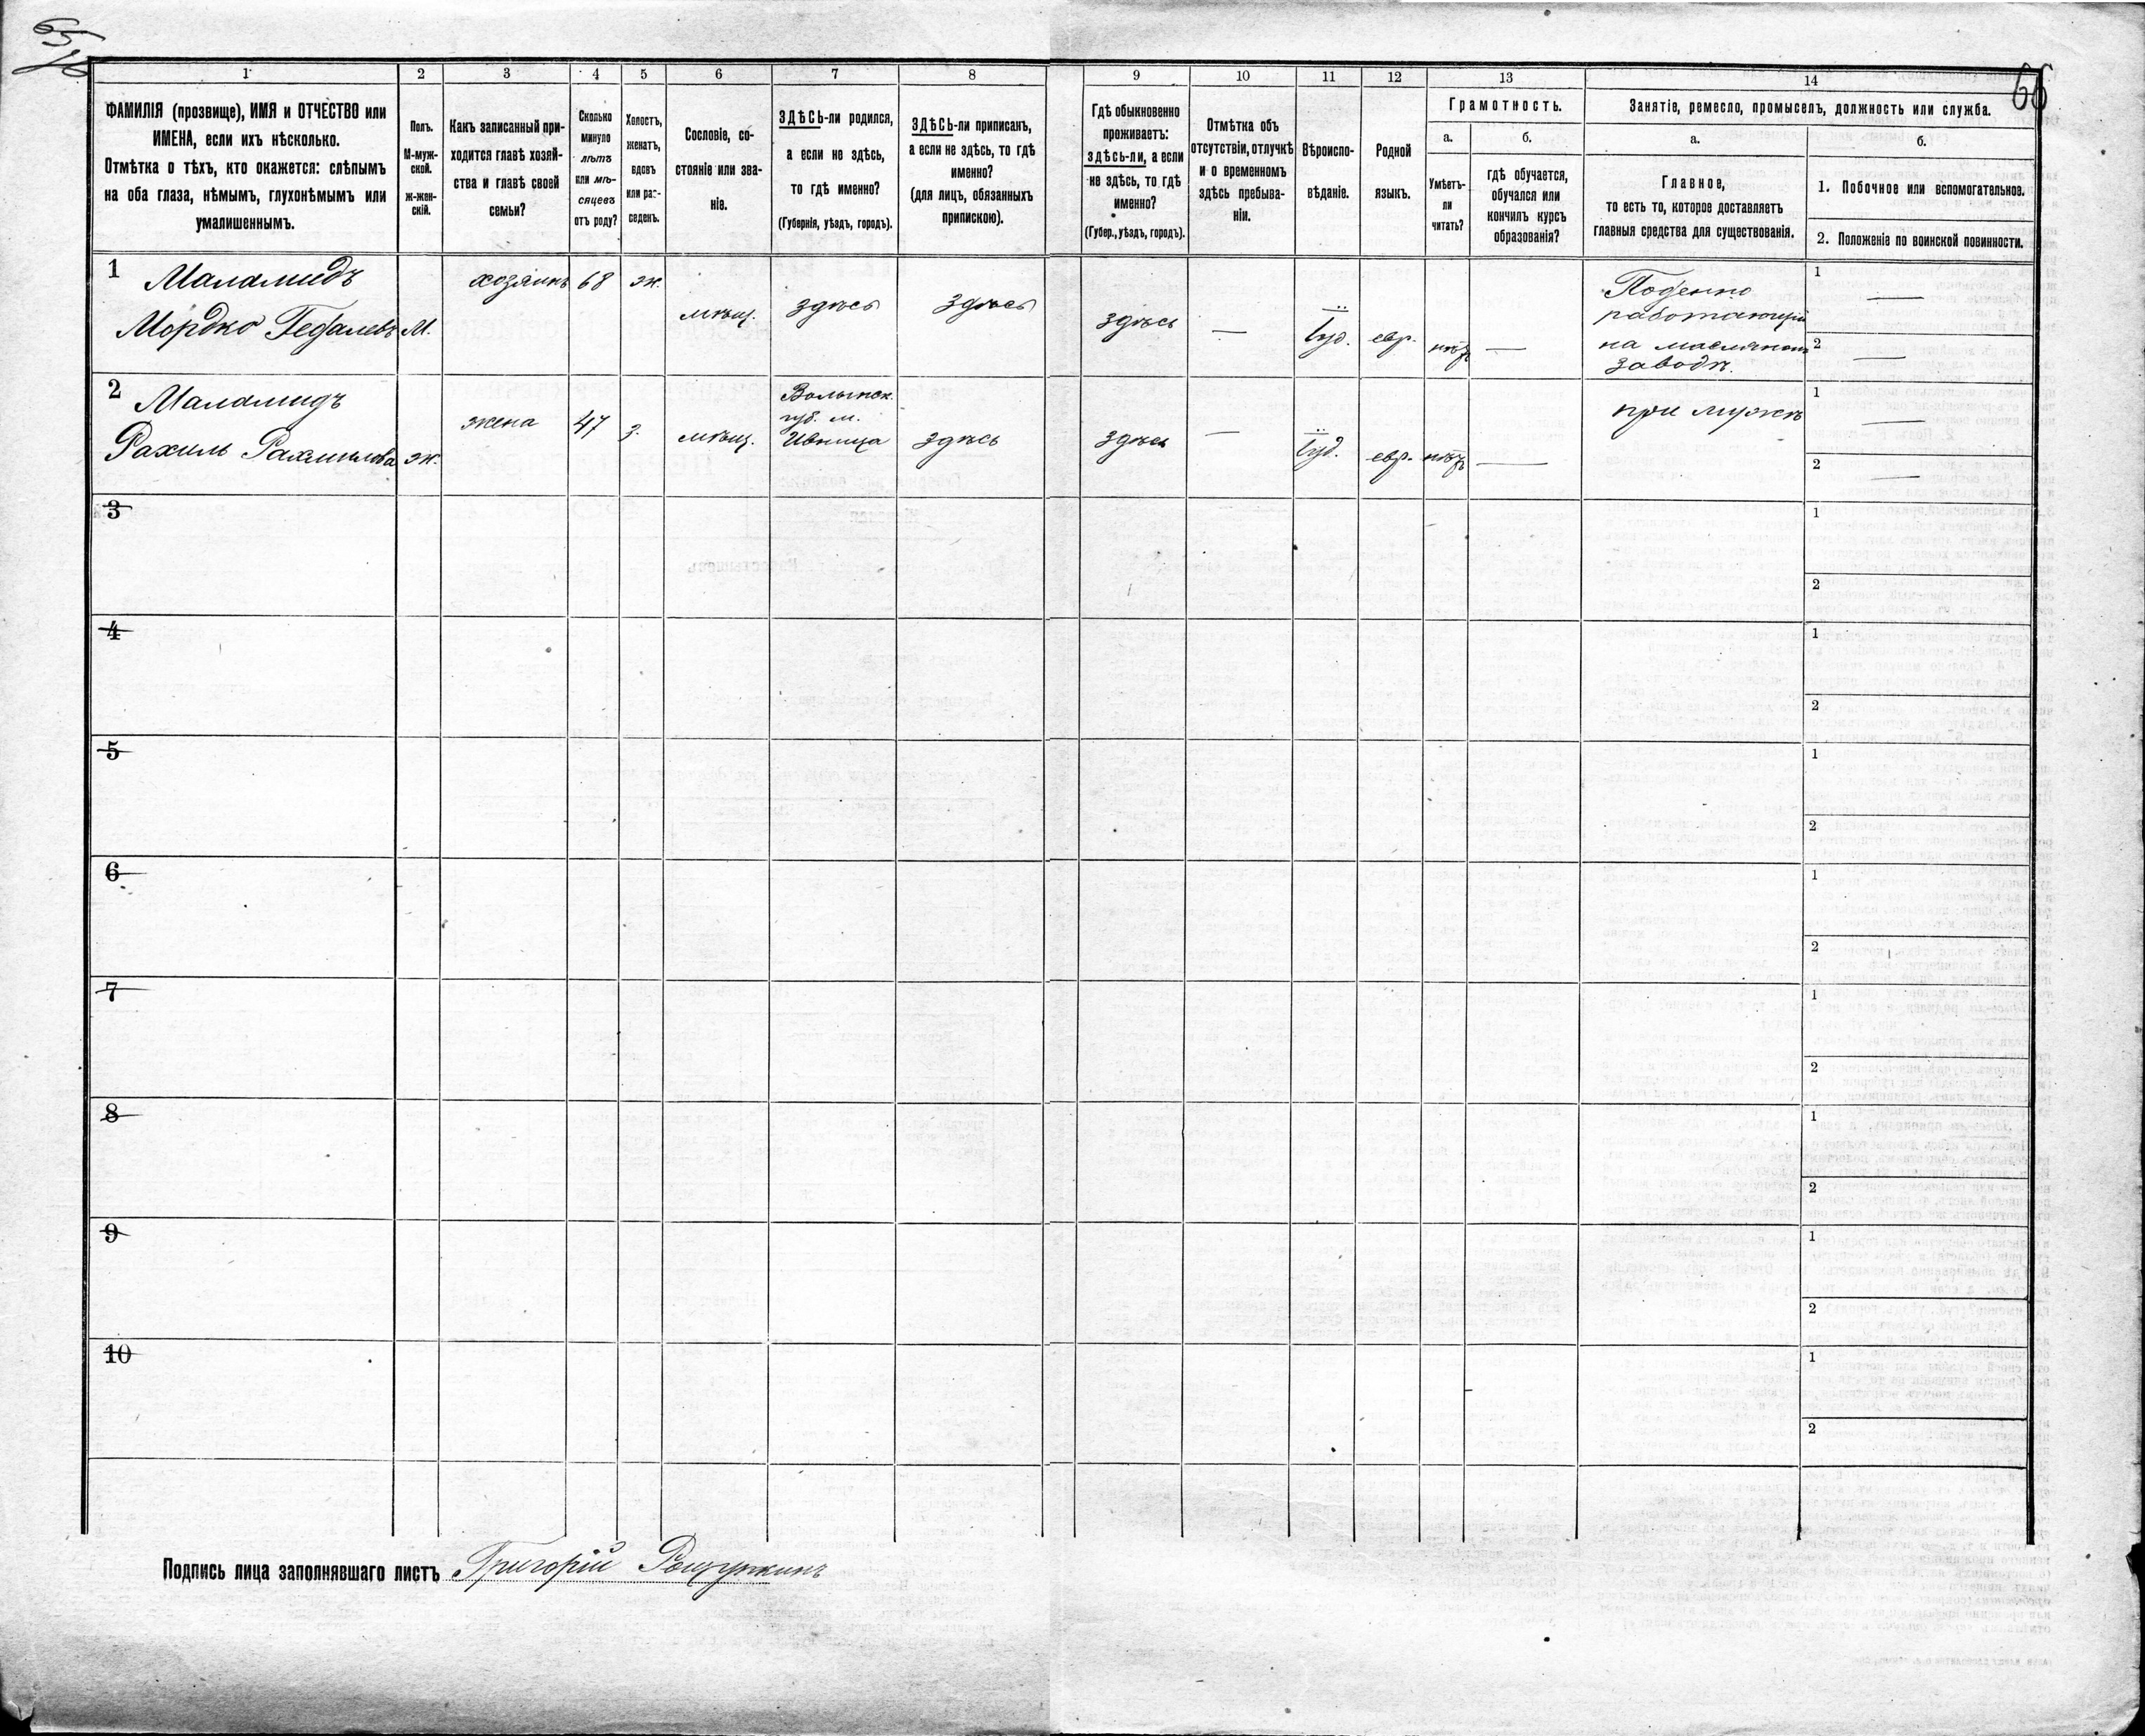 65 об
66
1 2 3 4 5 6 7 8 9 10 11 12 13 14
ФАМИЛІЯ (прозвище), ИМЯ и ОТЧЕСТВО или
ИМЕНА, если ихъ нѣсколько.
Отмѣтка о тѣхъ, кто окажется: слѣпымъ
на оба глаза, нѣмымъ, глухонѣмымъ или
умалишеннымъ.
Полъ.
М-муж-
ской.
ж-жен-
скій.
Какъ записанный при-
ходится главѣ хозяй-
ства и главѣ своей
семьи?
Сколько
минуло
лѣтъ
или мѣ-
сяцевъ
отъ роду?
Холостъ,
женатъ,
вдовъ
или раз-
веденъ.
Сословіе, со-
стояніе или зва-
ніе.
ЗДѢСЬ-ли родился,
а если не здѣсь,
то гдѣ именно?
(Губернія, уѣздъ, городъ).
ЗДѢСЬ-ли приписанъ,
а если не здѣсь, то гдѣ
именно?
(для лицъ, обязанныхъ
припискою).
Гдѣ обыкновенно
проживаетъ:
здѣсь-ли, а если
не здѣсь, то гдѣ
именно?
(Губер., уѣздъ, городъ).
Отмѣтка объ
отсутствіи, отлучкѣ
и о временномъ
здѣсь пребыва-
ніи.
Вѣроиспо-
вѣданіе.
Родной
языкъ.
Грамотность.
а.
Умѣетъ-
ли
читать?
б.
гдѣ обучается,
обучался или
кончилъ курсъ
образованія?
Занятіе, ремесло, промыселъ, должность или служба.
а.
Главное,
то есть то, которое доставляетъ
главныя средства для существованія.
б.
1. Побочное или вспомогательное.
2. Положеніе по воинской повинности.
1 Маламидъ
Мордко Гедалевъ М. хозяинъ 68 ж. мѣщ. здѣсь здѣсь здѣсь — Іуд. евр. нѣтъ —
Поденно
работающій
на масляномъ
заводѣ.
1 —
2 —
2 Маламидъ
Рахиль Рахмилова ж. жена 47 з. мѣщ.
Волынск.
губ. м.
Ивница
здѣсь здѣсь — Іуд. евр. нѣтъ — при мужѣ
1 —
2 —
3 1
2
4 1
2
5 1
2
6 1
2
7 1
2
8 1
2
9 1
2
10 1
2
Подпись лица заполнявшаго листъ Григорій